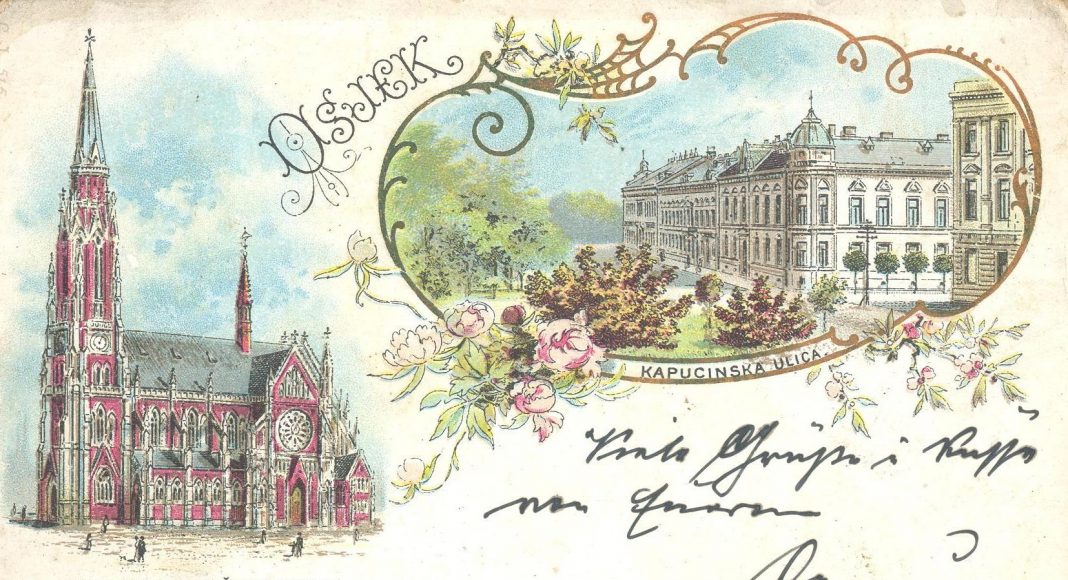 OSJEK
KAPUCINSKA ULICA.
Viele Grüße i Küsse
von Eurem